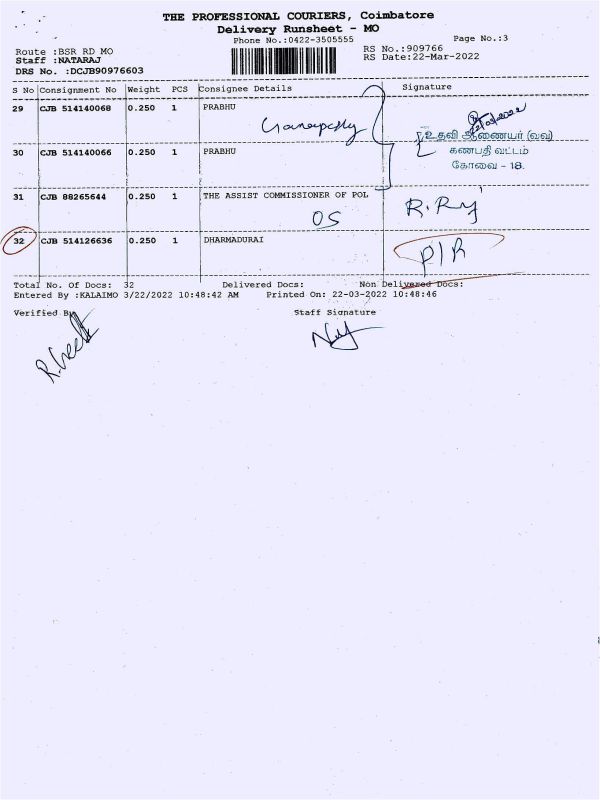 THE PROFESSIONAL COURIERS, Coimbatore
Delivery Runsheet - MO
Phone No.:0422-3505555 Page No.:3
Route :BSR RD MO RS No.:909766
Staff :NATARAJ RS Date:22-Mar-2022
DRS No. :DCJB90976603
S No Consignment No Weight PCS Consignee Details Signature
29 CJB 514140068 0.250 1 PRABHU
உதவி ஆணையர் (வவ)
30 CJB 514140066 0.250 1 PRABHU கணபதி வட்டம்
கோவை - 18.
31 CJB 88265644 0.250 1 THE ASSIST COMMISSIONER OF POL
OS
32 CJB 514126636 0.250 1 DHARMADURAI
P/R
Total No. Of Docs: 32 Delivered Docs: Non Delivered Docs:
Entered By :KALAIMO 3/22/2022 10:48:42 AM Printed On: 22-03-2022 10:48:46
Verified By Staff Signature